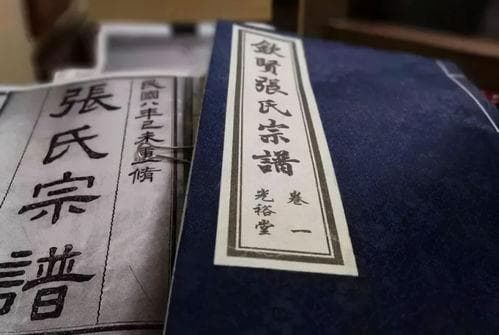 欽賢張氏宗譜
卷一
光裕堂
民國八年己未重脩
張氏宗譜